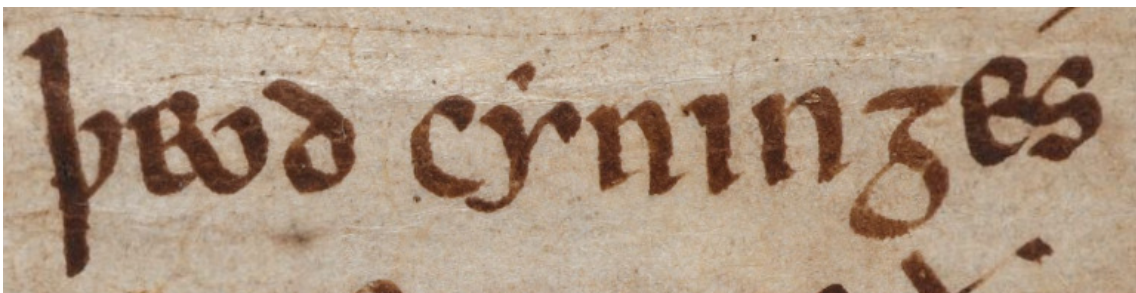 þeod cyninges